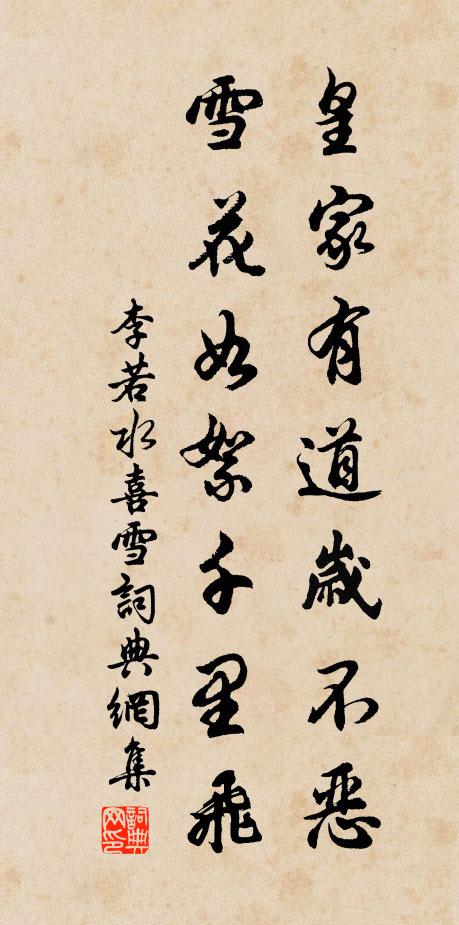 皇家有道歲不惡
雪花如絮千里飛
李若水喜雪詞典網集
詞典网印